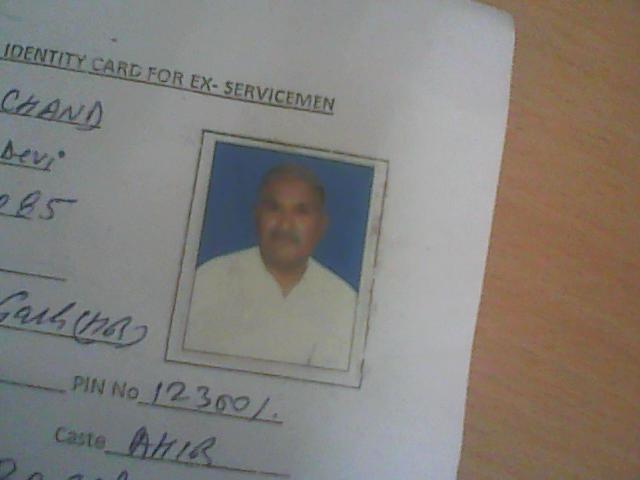 IDENTITY CARD FOR EX- SERVICEMEN
CHAND
Devi
PIN No 123601.
Caste AHIR